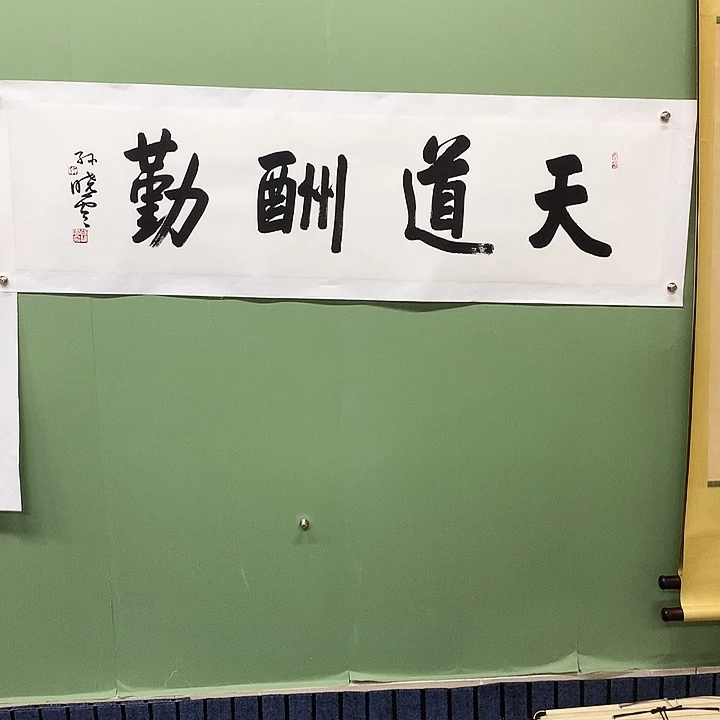 天道酬勤
孙晓云